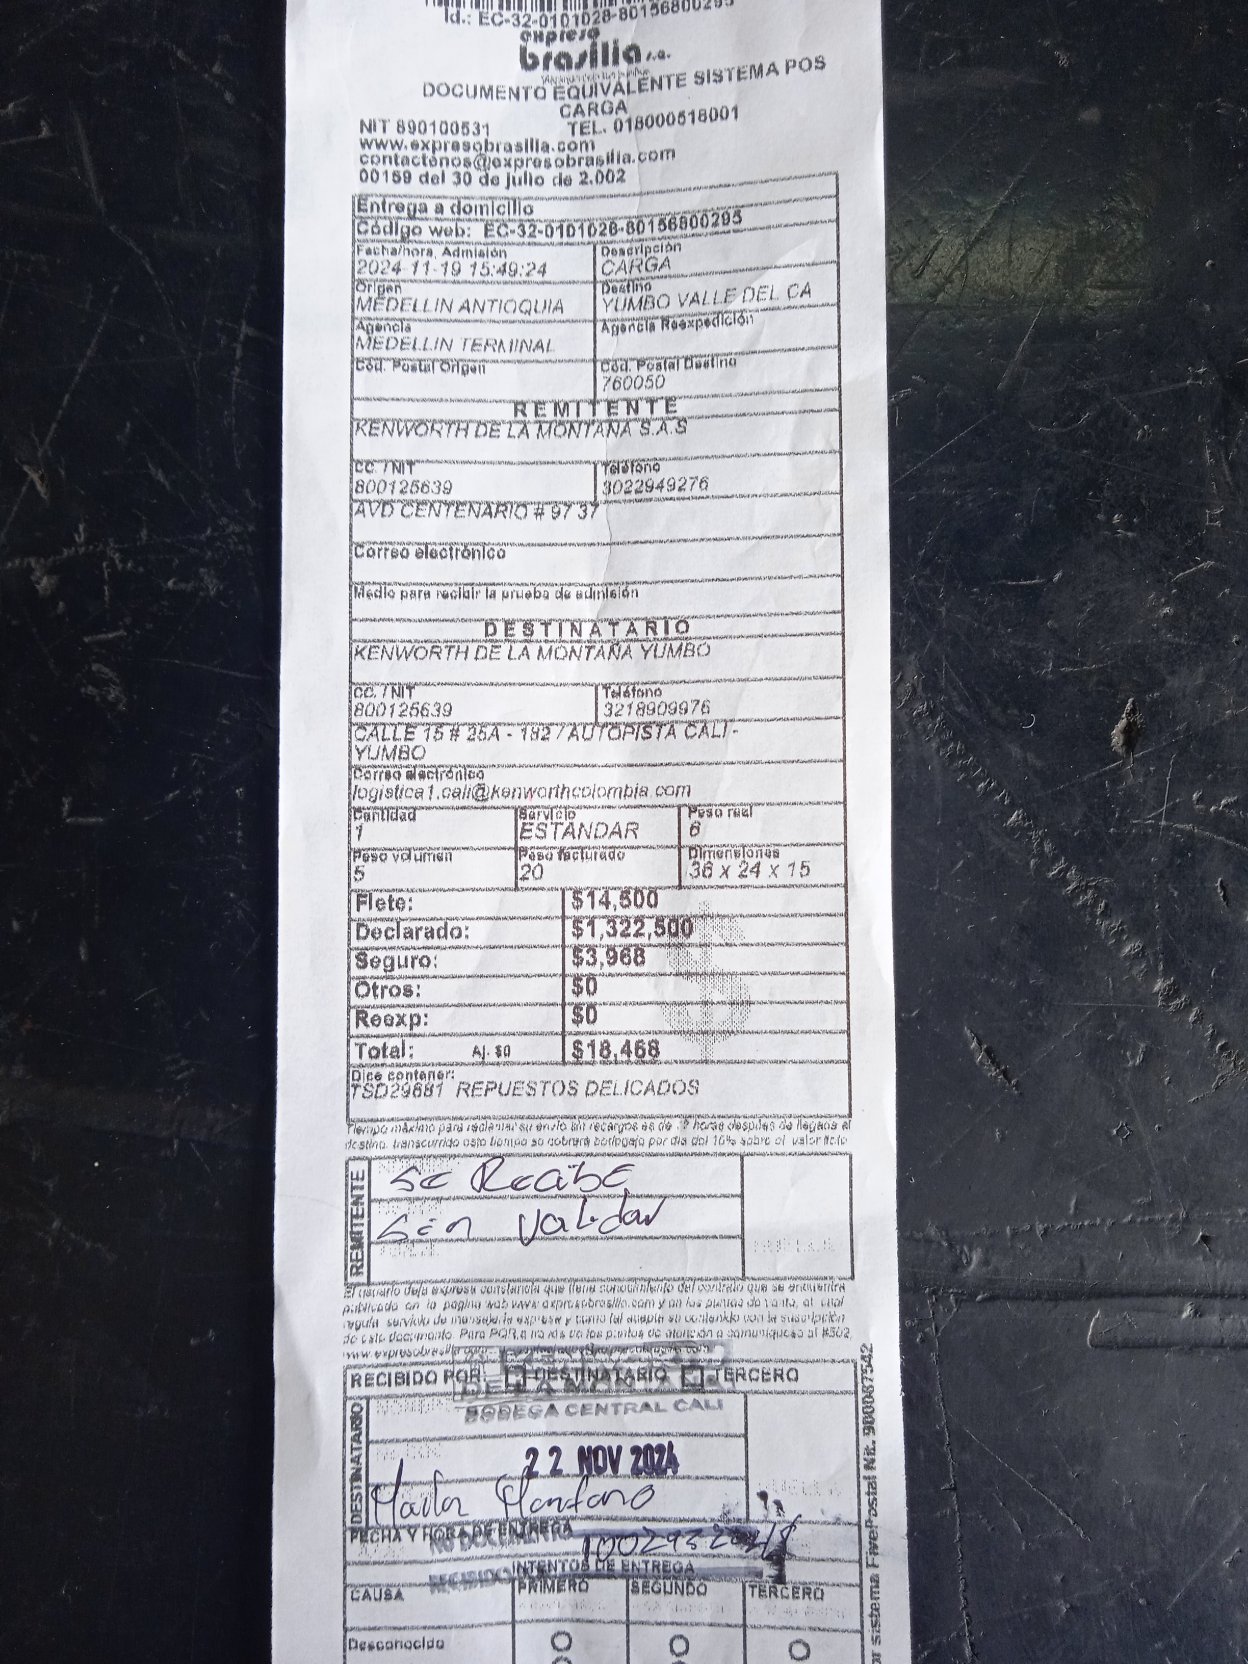 Id.: EC-32-0101028-80156800295
expreso
brasilia s.a.
DOCUMENTO EQUIVALENTE SISTEMA POS
CARGA
NIT 890100531 TEL. 018000518001
www.expresobrasilia.com
contactenos@expresobrasilia.com
00159 del 30 de julio de 2.002
Entrega a domicilio
Código web: EC-32-0101028-80156800295
Fecha/hora. Admisión Descripción
2024-11-19 15:49:24 CARGA
Origen Destino
MEDELLIN ANTIOQUIA YUMBO VALLE DEL CA
Agencia Agencia Reexpedición
MEDELLIN TERMINAL
Cód. Postal Origen Cód. Postal Destino
760050
REMITENTE
KENWORTH DE LA MONTAÑA S.A.S
CC. / NIT Teléfono
800125639 3022949276
AVD CENTENARIO # 97 37
Correo electrónico
Medio para recibir la prueba de admisión
DESTINATARIO
KENWORTH DE LA MONTAÑA YUMBO
CC. / NIT Teléfono
800125639 3218909976
CALLE 15 # 25A - 182 / AUTOPISTA CALI -
YUMBO
Correo electrónico
logistica1.cali@kenworthcolombia.com
Cantidad Servicio Peso real
1 ESTANDAR 6
Peso volumen Peso facturado Dimensiones
5 20 36 x 24 x 15
Flete: $14,500
Declarado: $1,322,500
Seguro: $3,968
Otros: $0
Reexp: $0
Total: Aj. $0 $18,468
Dice contener:
TSD29881 REPUESTOS DELICADOS
Tiempo máximo para reclamar su envío sin recargos es de horas después de llegada al
destino, transcurrido este tiempo se cobrará bodegaje por día del 10% sobre el valor flete
REMITENTE
Se Recibe
Sin validar
El usuario deja expresa constancia que tiene conocimiento del contrato que se encuentra
publicado en la página web www.expresobrasilia.com y en los puntos de venta, el cual
regula servicio de mensajería expresa y como tal acepta su contenido con la suscripción
de este documento. Para PQR a través de los puntos de atención o comuníquese al #502,
www.expresobrasilia.com
RECIBIDO POR: DESTINATARIO TERCERO
DE LA MONTAÑA
BODEGA CENTRAL CALI
DESTINATARIO
22 NOV 2024
FECHA Y HORA DE ENTREGA
RECIBIDO
INTENTOS DE ENTREGA
CAUSA PRIMERO SEGUNDO TERCERO
Desconocido
sistema FivePostal Nit. 900087542